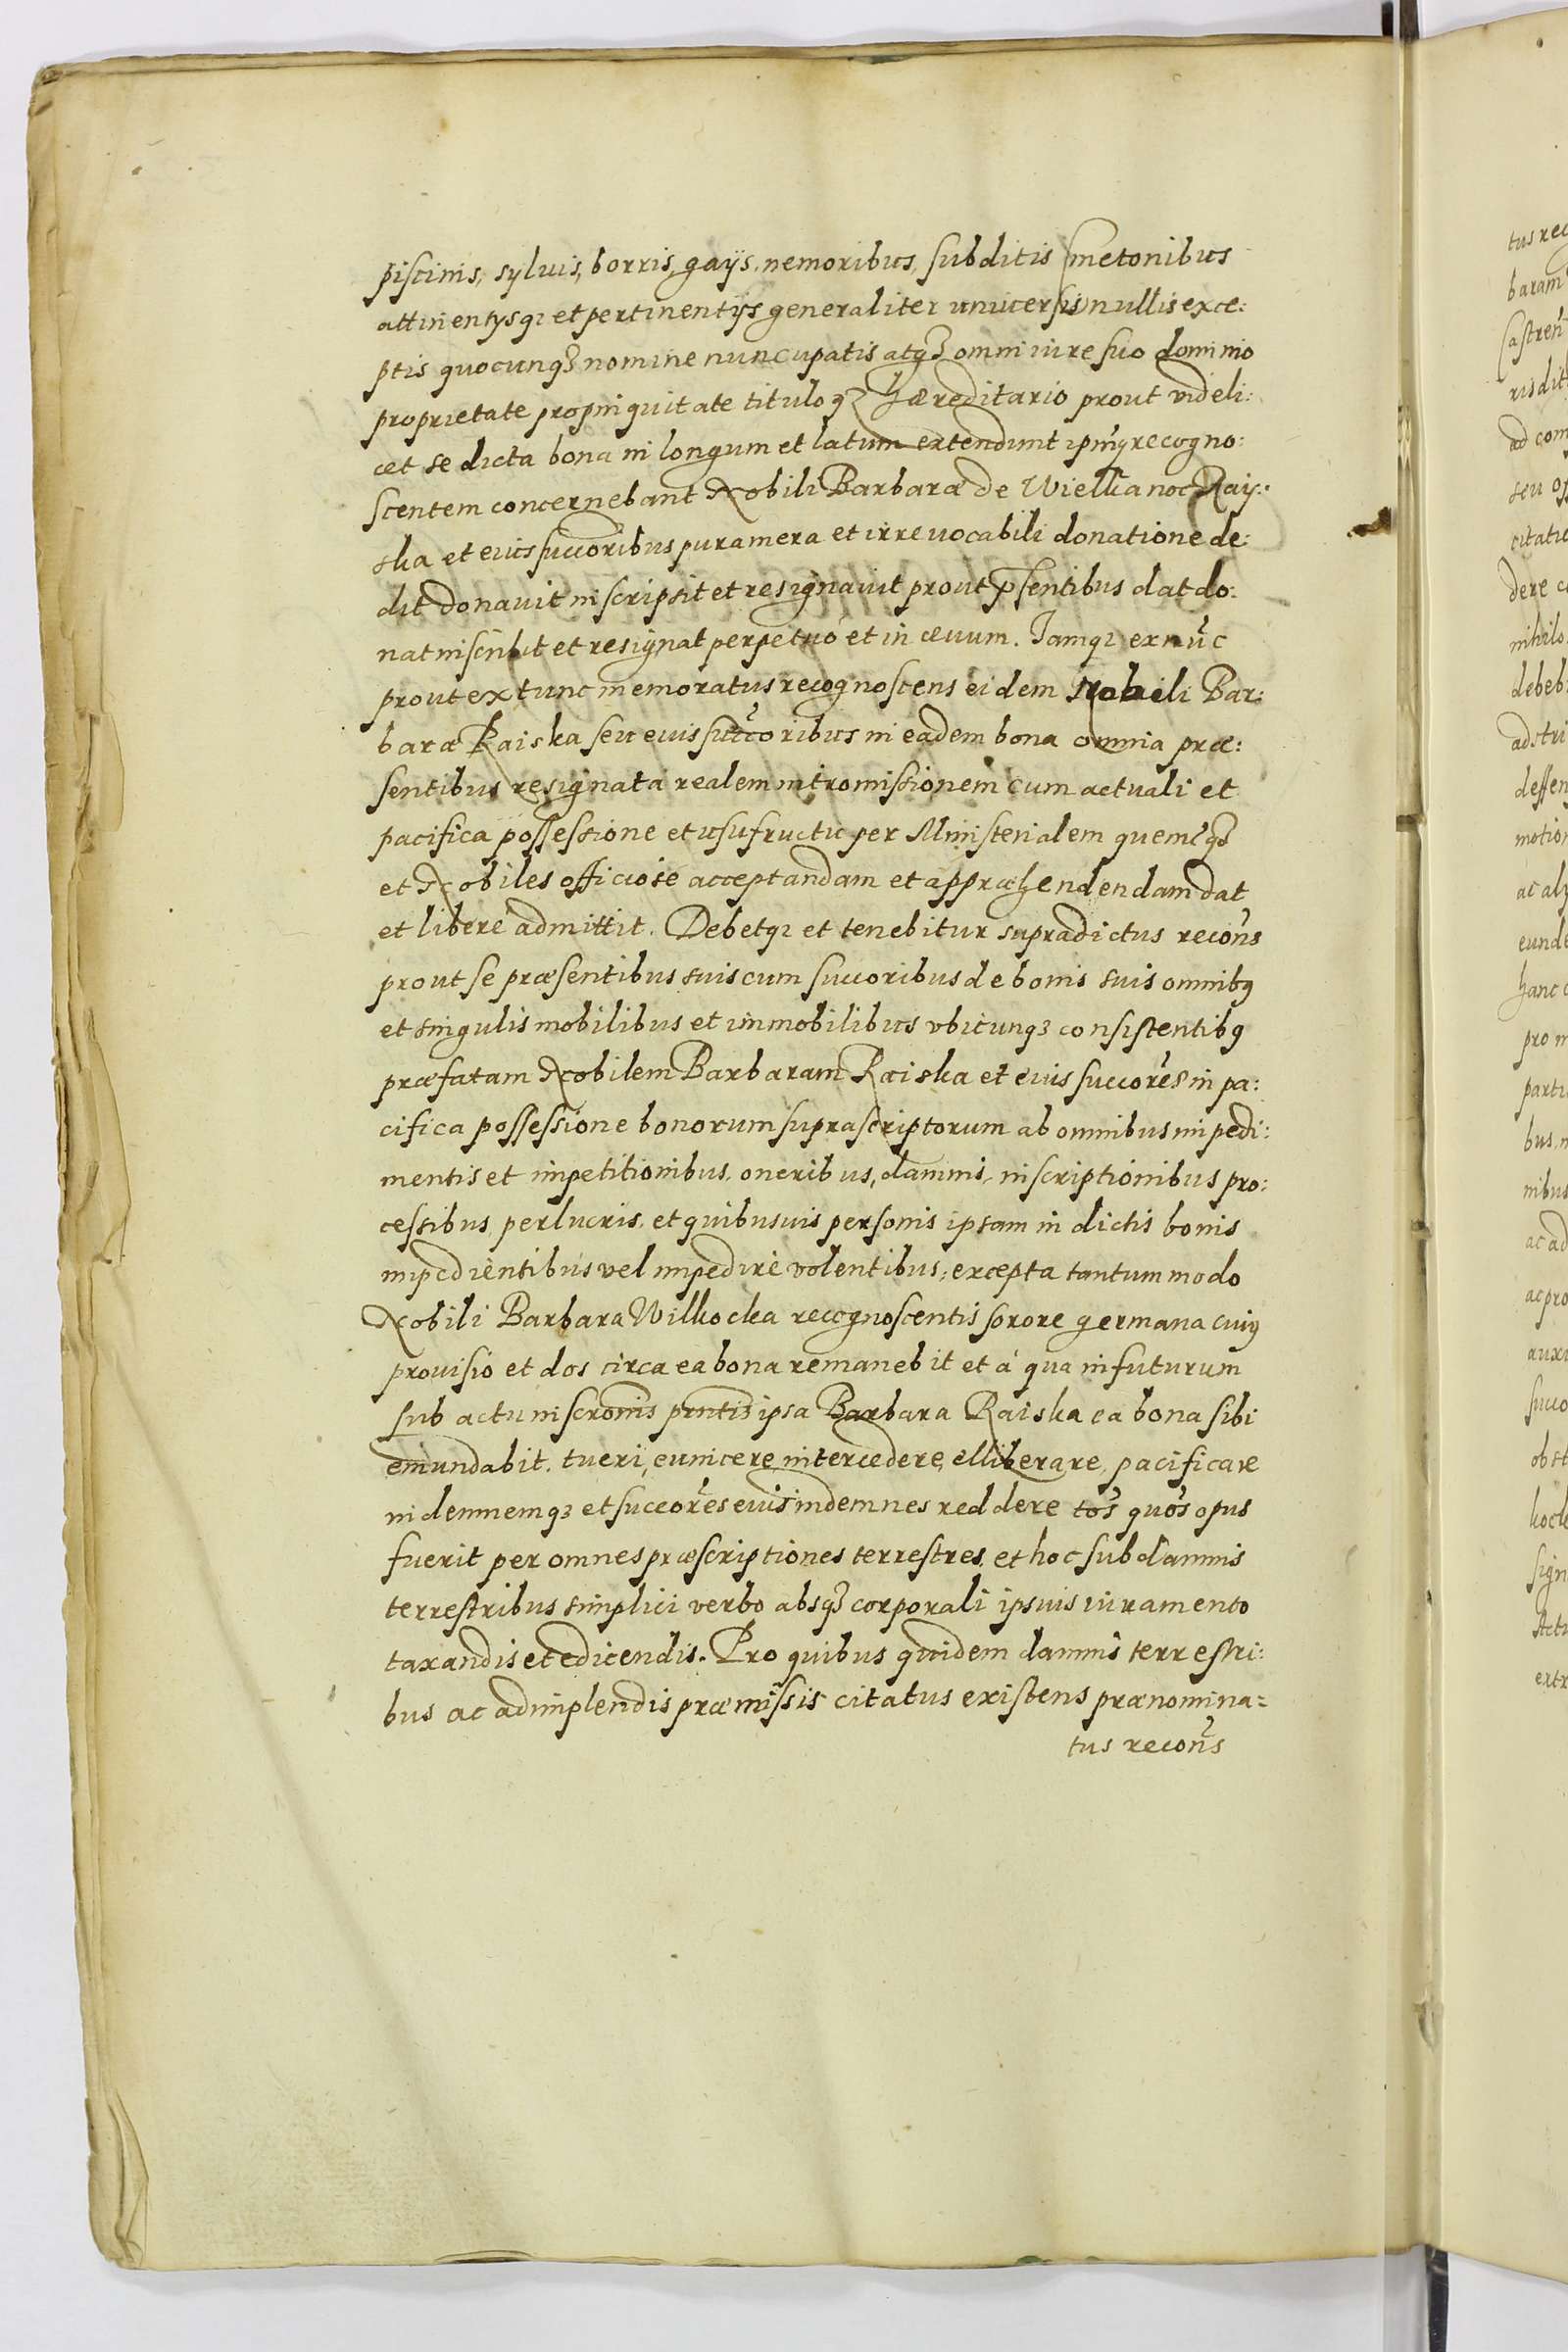 piscinis, syluis, borris, gays, nemoribus, subditis smetonibus
attinentysq3 et pertinentijs generaliter uniuersis nullis exce:
ptis quocunq3 nomine nuncupatis atq3 omni iure suo dominio
proprietate propinquitate tituloq3 Hæreditario prout videli:
cet se dicta bona in longum et latum extendunt ipm̃q3 recogno:
scentem concernebant Nobili Barbaræ de Wielkanoc Ray:
ska et eius succoribus pura mera et irreuocabili donatione de:
dit donauit inscripsit et resignauit prout p̃sentibus dat do:
nat inscribit et resignat perpetuò et in æuum. Iamq3 ex nũc
prout ex tunc memoratus recognoscens eidem Nobili Bar:
baræ Raiska seu euis succoribus in eadem bona omnia præ:
sentibus resignata realem intromissionem cum actuali et
pacifica possessione et usufructu per Ministerialem quemcq3
et Nobiles officiose acceptandam et appræhendendam dat
et libere admittit. Debetq3 et tenebitur supradictus recon̄s
prout se præsentibus suis cum succoribus de bonis suis omnib9
et singulis mobilibus et immobilibus vbicunq3 consistentib9
præfatam Nobilem Barbaram Raiska et euis succores in pa:
cifica possessione bonorum suprascriptorum ab omnibus impedi:
mentis et impetitionibus, oneribus, damnis, inscriptionibus pro:
cessibus perlucris, et quibusuis personis ipsam in dictis bonis
impedientibus vel impedire volentibus, excepta tantummodo
Nobili Barbara Wilkocka recognoscentis sorore germana cui9
prouisio et dos circa ea bona remanebit et à qua in futurum
sub actu inscronis pntis ipsa Barbara Raiska ea bona sibi
emundabit. tueri, euincere intercedere, elliberare, pacificare
indemnemq3 et succores euis indemnes reddere tos̃ quos̃ opus
fuerit per omnes præscriptiones terrestres, et hoc sub damnis
terrestribus simplici verbo absq3 corporali ipsius iuramento
taxandis et edicendis. Pro quibus quidem damnis terrestri:
bus ac adimplendis præmissis citatus existens prænomina=
tus recon̄s